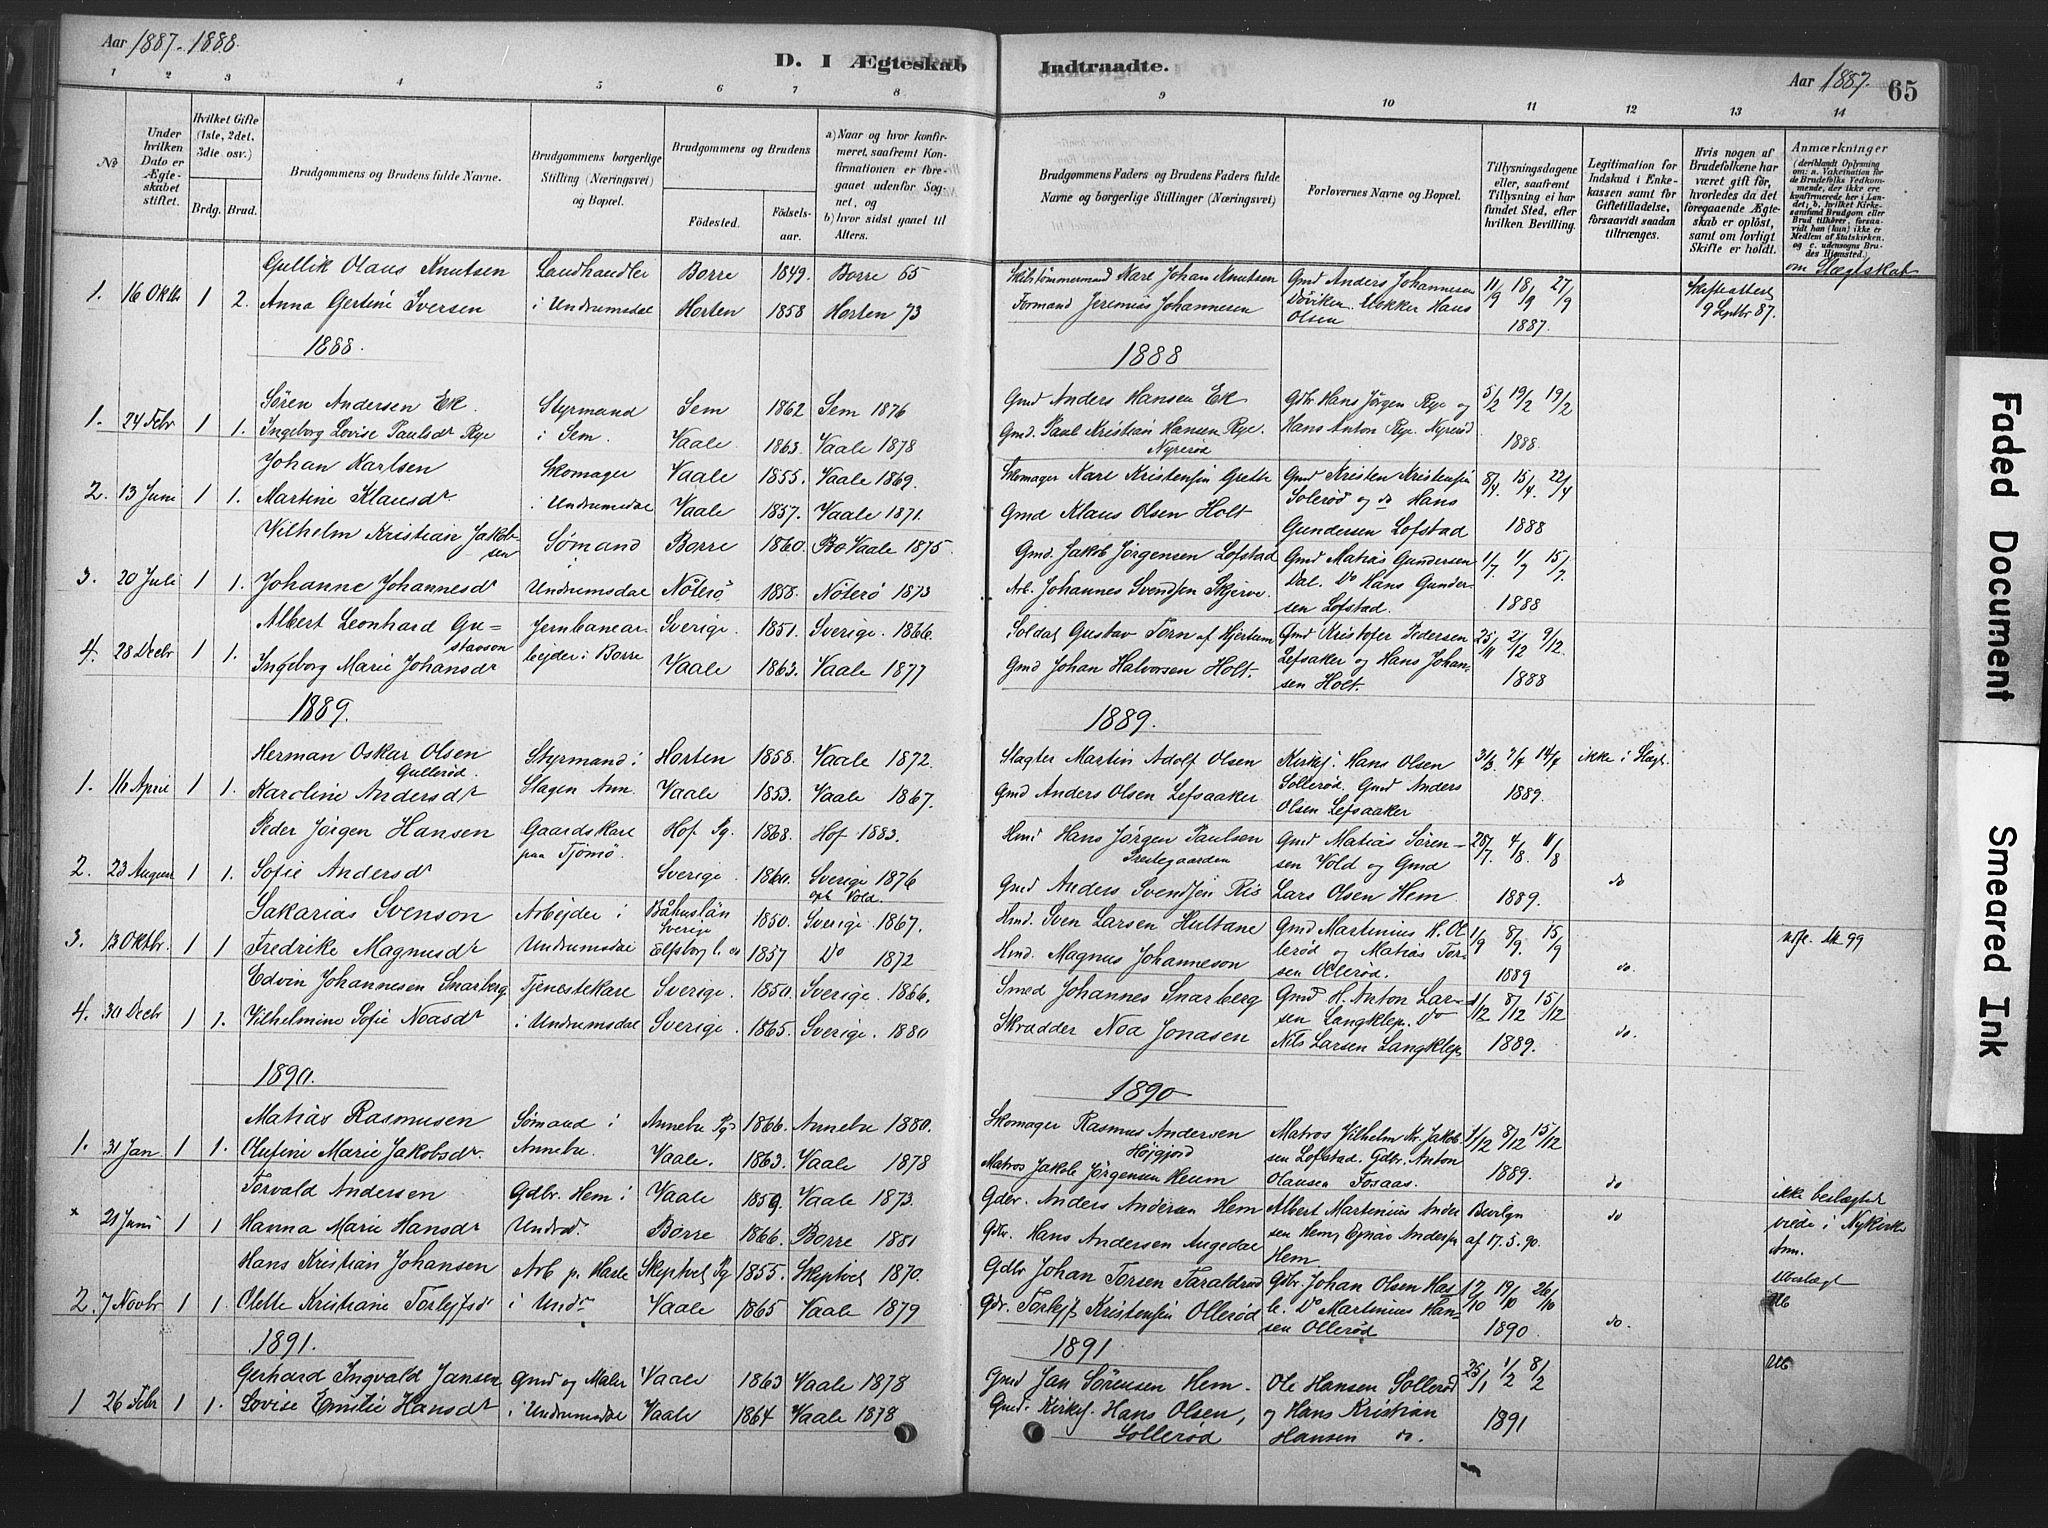 Aar 1887-1888.
D. I Ægteskab Indtraadte.
Aar 1887.
65
1 2 3 4 5 6 7 8 9 10 11 12 13 14
No
Under hvilken Dato er Ægteskabet stiftet.
Hvilket Gifte (1ste, 2det, 3die osv.)
Brdg. Brud.
Brudgommens og Brudens fulde Navne.
Brudgommens borgerlige Stilling (Næringsvei) og Bopæl.
Brudgommens og Brudens
Fødested.
Fødselsaar.
a) Naar og hvor konfirmeret, saafremt Konfirmationen er foregaaet udenfor Sognet, og
b) hvor sidst gaaet til Alters.
Brudgommens Faders og Brudens Faders fulde Navne og borgerlige Stillinger (Næringsvei)
Forlovernes Navne og Bopæl.
Tillysningsdagene eller, saafremt Tillysning ei har fundet Sted, efter hvilken Bevilling.
Legitimation for Indskud i Enkekassen samt for Giftetilladelse, forsaavidt saadan tiltrænges.
Hvis nogen af Brudefolkene har været gift før, hvorledes da det foregaaende Ægteskab er opløst, samt om lovligt Skifte er holdt.
Anmærkninger
om Slægtskab
Gullik Olaus Knutsen Landhandler Borre 1849. Borre 65 Karl Johan Knutsen Gmd Anders Johannesen 11/9 18/9 27/9 Skifteattest
1. 16 Oktb. 1 2. Anna Gertine Iversen i Undrumsdal Horten 1858 Horten 73 Formand Jeremias Johannesen Hans Olsen 1887. 9 Septbr 87.
1888. 1888
Søren Andersen Ek. Styrmand Sem 1862 Sem 1876 Gmd Anders Hansen Ek Gdbr Hans Jørgen Rye og 5/2 19/2 19/2
1. 24 Febr 1 1. Ingeborg Lovise Paulsdr Rye i Sem. Vaale 1863. Vaale 1878 Gmd. Paul Kristian Hansen Rye. Nyrerød Hans Anton Rye. Nyrerød 1888.
Johan Karlsen Skomager Vaale 1855. Vaale 1869. Skomager Karl Kristensen Gmd Kristen Kristensen 8/4. 15/4. 22/4
2. 13 Juni 1 1. Martine Klausdr i Undrumsdal Vaale 1857. Vaale 1871. Gmd Klaus Olsen Holt Solerød og do Hans Gundersen Lofstad 1888
Wilhelm Kristian Jakobsen Sømand i Borre 1860. Vaale 1875. Gmd. Jakob Jørgensen Lofstad Gmd Matias Gundersen 1/7. 15/7.
3. 20 Juli 1 1. Johanne Johannesdr Undrumsdal Nøterø 1858. Nøterø 1873 Arb. Johannes Svendsen Skjerve. Dal. Do Hans Gundersen Lofstad. 1888
Albert Leonhard Gustavson Jernbanearbejder i Borre Sverige. 1851. Sverige. 1866. Soldat Gustav Torn af Hjertum Gmd Kristofer Pedersen 25/11 2/12 9/12.
4. 28 Decbr 1 1. Ingeborg Marie Johansdr Vaale 1863. Vaale 1877 Gmd Johan Halvorsen Holt. Lefsaker og Hans Johansen Holt. 1888
1889. 1889.
Herman Oskar Olsen Gullerød. Styrmand i Horten 1858. Vaale 1872. Slagter Martin Adolf Olsen Kirkesj. Hans Olsen 31/3. 14/4 ikke i Slægt.
1. 16 April 1 1. Karoline Andersdr Slagen Ann. Vaale 1853. Vaale 1867. Gmd Anders Olsen Lefsaaker Sollerød, Gmd Anders Olsen Lefsaaker 1889.
Peder Jørgen Hansen Gaardskarl Hof Pg. 1868. Hof 1883. Hmd Hans Jørgen Paulsen Prestegaarden Gmd Matias Sørensen 28/7. 4/8. 11/8
2. 23 August 1 1. Sofie Andersdr paa Tjømø. Sverige 1860. Sverige 1876 Gmd Anders Svendsen Ris Vold og Gmd Lars Olsen Hem 1889. do
Sakarias Svenson Arbejder i Båhuslän Sverige 1850. Sverige 1867. Hmd. Sven Larsen Hultane Gmd Martinius H. Ol- 1/9 8/9. 15/9 99
3. 13 Oktbr. 1 1 Fredrike Magnusdr Undrumsdal Elfsborg l. 1857 Do 1872 Hmd. Magnus Johanneson lerød og Matias Torsen Ollerød. 1889 do.
Edvin Johannesen Snarberg Tjenestekarl Sverige. 1850. Sverige. 1866. Smed Johannes Snarberg Gmd H. Anton Lar- 1/12 8/12 15/12
4. 30 Decbr 1 1. Vilhelmine Sofie Noasdr i Undrumsdal Sverige. 1865. Sverige. 1880 Skrædder Noa Jonasen sen Langklep. Do Nils Larsen Langklep 1889. do.
1890. 1890
Matias Rasmusen Sømand i Annebu Pg. 1866. Annebu 1880. Skomager Rasmus Andersen Højgjord Matros Vilhelm Kr. Jakob- 1/12 8/12 15/12
1. 31 Jan 1 1. Olufine Marie Jakobsdr. Annebu. Vaale. 1863. Vaale 1878 Matros Jakob Jørgensen Heum sen Lofstad. Gdbr. Anton Olausen Fosaas. 1889. do
Torvald Andersen Gdbr. Hem i Vaale 1859. Vaale 1873. Gdbr. Anders Andersen Hem Albert Martinius Ander- ikke beslægtet
x 21 Juni 1 1 Hanna Marie Hansdr Undrdl. Borre 1866. Borre 1881 Gbr. Hans Andersen Augedal sen Hem, Ejnar Andersen Hem. af 17.5.90. do viede i Nykirke Ann.
Hans Kristian Johansen Arb p. Hasle Skiptvet Pg 1855. Skiptvet 1870. Gdbr Johan Torsen Gdbr. Johan Olsen Has- 12/10 19/10 26/10 Ubeslægt
2. 7 Novbr 1 1. Olette Kristiane Torlejfsdr i Undr Vaale 1865 Vaale 1879 Gdr. Torlejf Kristensen Ollerød le. Do Martinius Hansen Ollerød 1890 do.
1891. 1891
Gerhard Ingvald Jansen Gmd og Maler Vaale 1863 Vaale 1878 Gmd Jan Sørensen Hem. Ole Hansen Sollerød 25/1 1/2 8/2
1 26 Febr 1 1. Lovise Emilie Hansdr i Undrumsdal Vaale 1864 Vaale 1878 Gmd. Kirkesj. Hans Olsen, Sollerød og Hans Kristian Hansen do. 1891
Faded Document
Smeared Ink